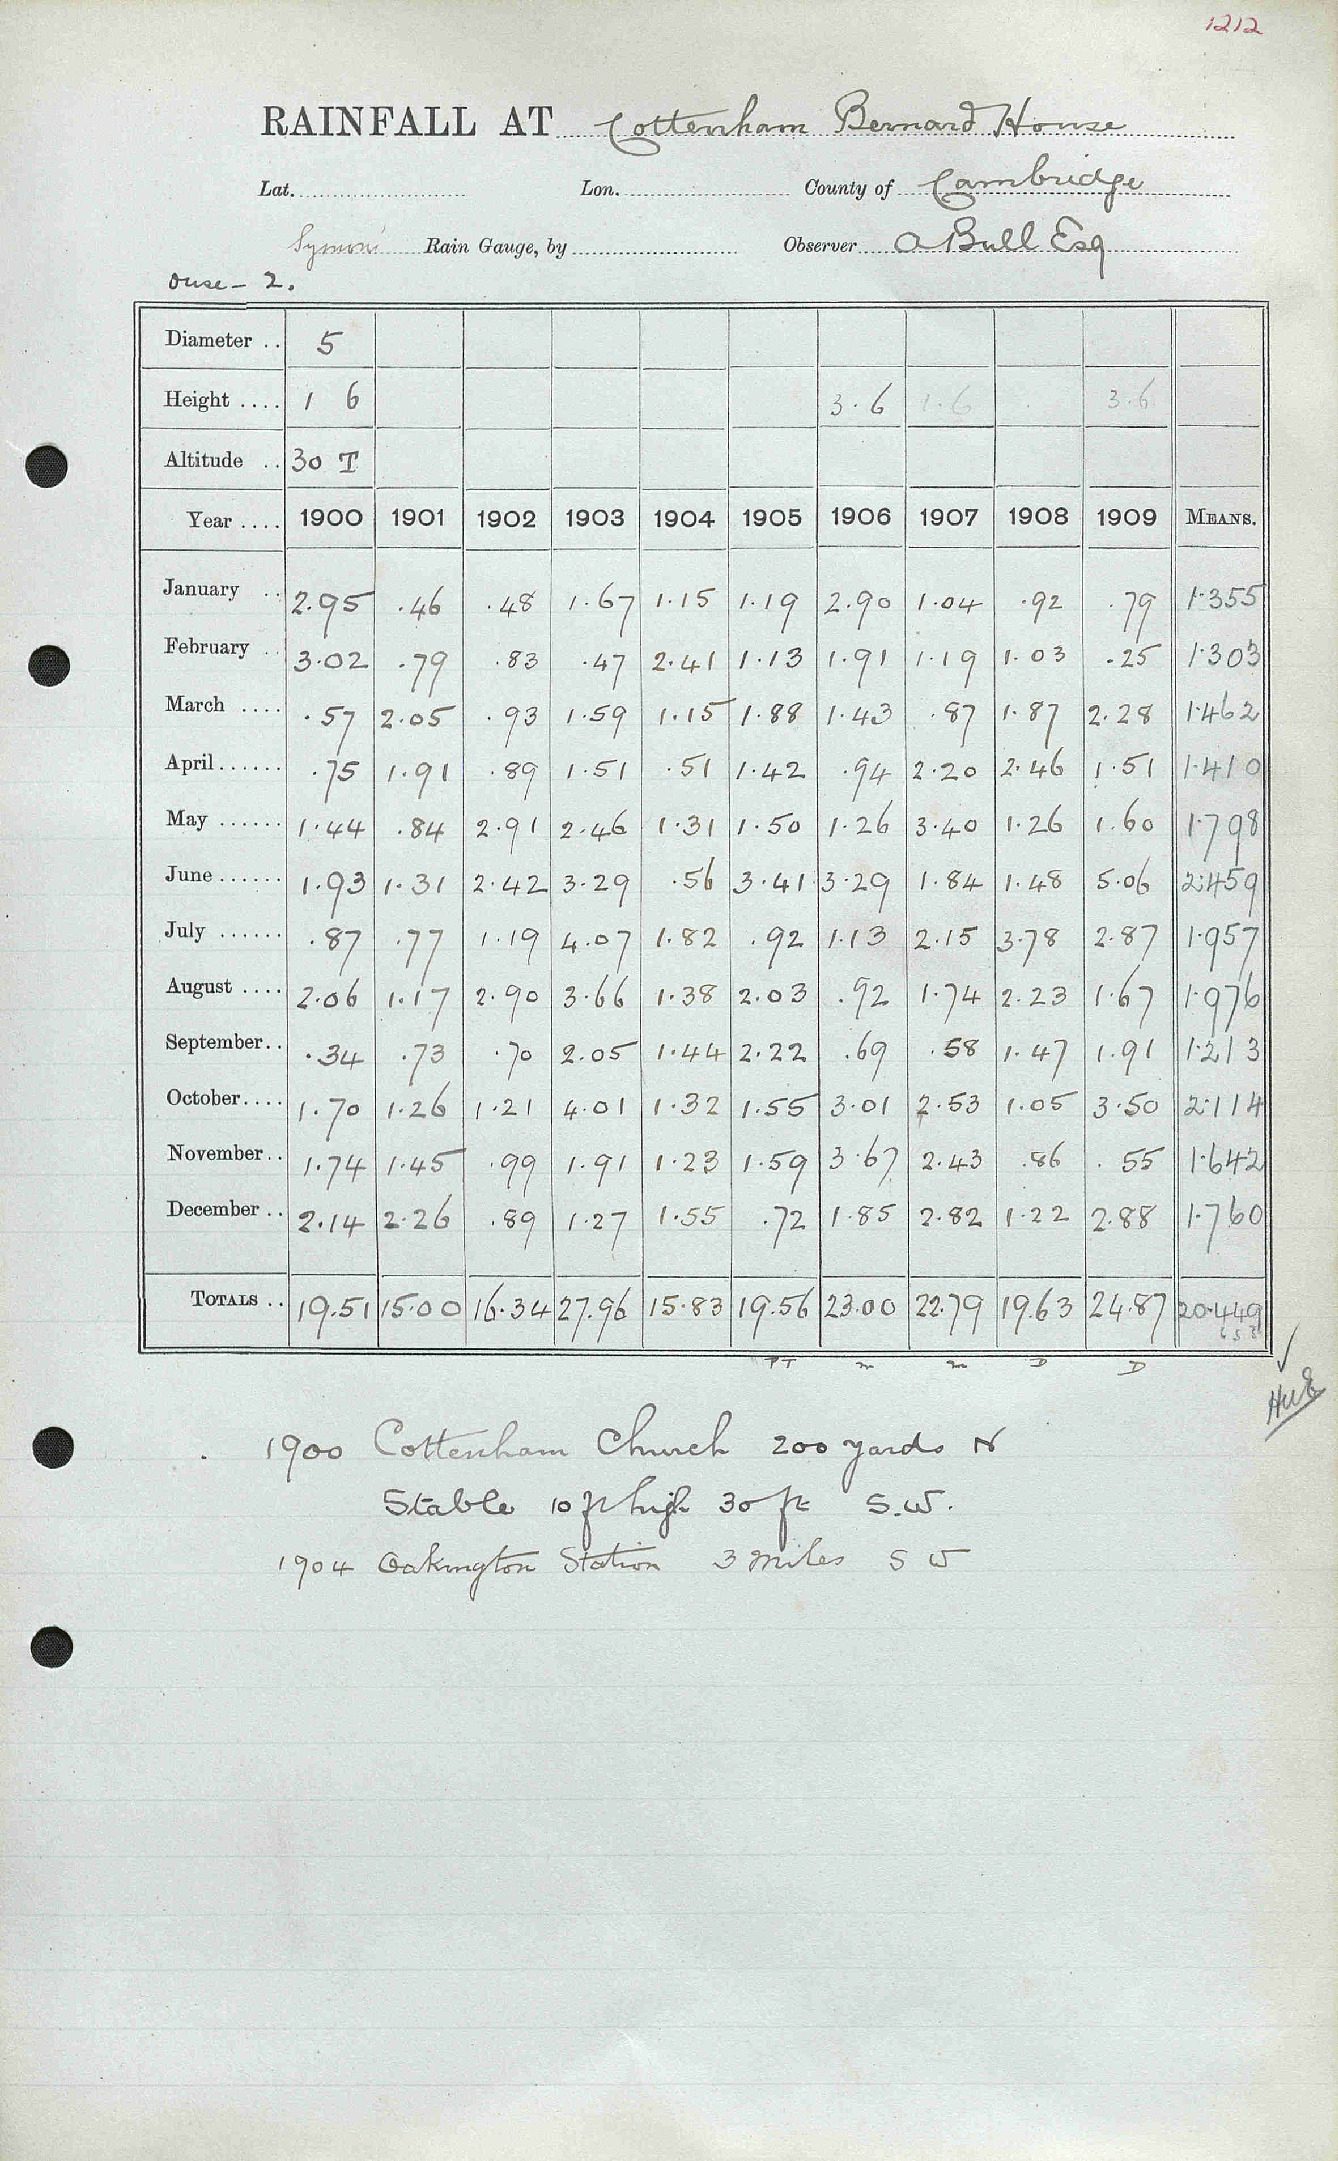 1212
RAINFALL AT Cottenham Bernard House
Lat. Lon. County of Cambridge
Symons Rain Gauge, by Observer A Bull Esq
Ouse - 2.
Diameter .. 5
Height .... 1 6 3.6 1.6 3.6
Altitude .. 30 T
Year .... 1900 1901 1902 1903 1904 1905 1906 1907 1908 1909 MEANS.
January .. 2.95 .46 .48 1.67 1.15 1.19 2.90 1.04 .92 .79 1.355
February .. 3.02 .79 .83 .47 2.41 1.13 1.91 1.19 1.03 .25 1.303
March .... .57 2.05 .93 1.59 1.15 1.88 1.43 .87 1.87 2.28 1.462
April...... .75 1.91 .89 1.51 .51 1.42 .94 2.20 2.46 1.51 1.410
May ...... 1.44 .84 2.91 2.46 1.31 1.50 1.26 3.40 1.26 1.60 1.798
June ...... 1.93 1.31 2.42 3.29 .56 3.41 3.29 1.84 1.48 5.06 2.459
July ...... .87 .77 1.19 4.07 1.82 .92 1.13 2.15 3.78 2.87 1.957
August .... 2.06 1.17 2.90 3.66 1.38 2.03 .92 1.74 2.23 1.67 1.976
September.. .34 .73 .70 2.05 1.44 2.22 .69 .58 1.47 1.91 1.213
October.... 1.70 1.26 1.21 4.01 1.32 1.55 3.01 2.53 1.05 3.50 2.114
November.. 1.74 1.45 .99 1.91 1.23 1.59 3.67 2.43 .86 .55 1.642
December .. 2.14 2.26 .89 1.27 1.55 .72 1.85 2.82 1.22 2.88 1.760
TOTALS .. 19.51 15.00 16.34 27.96 15.83 19.56 23.00 22.79 19.63 24.87 20.449
PT m m D D
1900 Cottenham Church 200 yards N
Stable 10 ft high 30 ft S.W.
1904 Oakington Station 3 miles S W